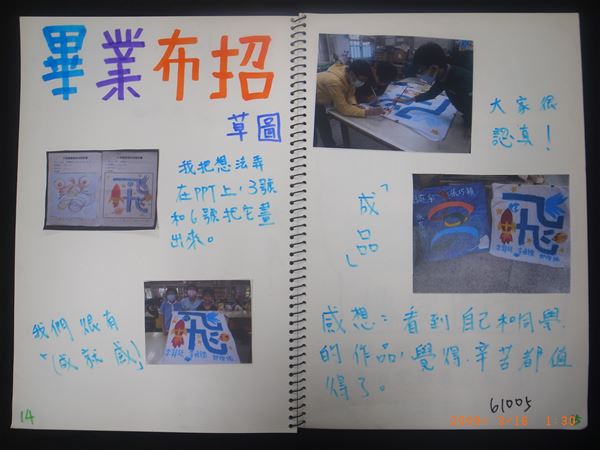 畢業布招
草圖
我把想法弄
在PPT上，3號
和6號把它畫
出來。
飛
我們很有
「成就感」
飛
14
大家很
認真！
「成品」
飛
感想：看到自己和同學
的作品，覺得辛苦都值
得了。
61005
1:30